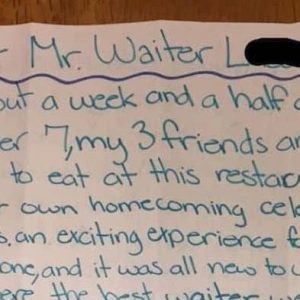 Mr. Waiter L
out a week and a half
er 7, my 3 friends an
to eat at this restau
r own homecoming cel
s, an exciting experience f
one, and it was all new to u
ere the best waiter w